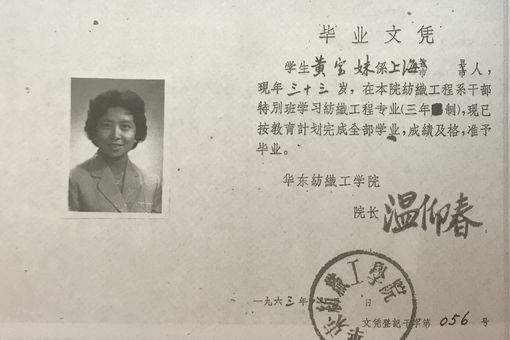 毕业文凭
学生黄宝妹係上海 人，
现年三十三岁，在本院纺織工程系干部
特别班学习纺織工程专业(三年 制)，现已
按教育計划完成全部学业，成績及格，准予
毕业。
华东紡織工学院
院长 温仰春
一九六三年 日
文凭登記 字第056号
华东紡織工学院